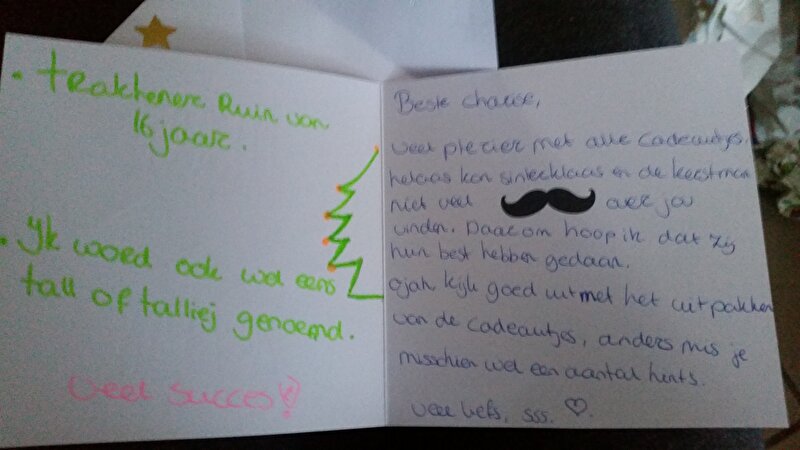 • trakhenere Ruin van
16 jaar.
• Ik word ook wel eens
tall of talliej genoemd.
Veel succes!
Beste charise,
veel plezier met alle cadeautjes.
helaas kon sinterklaas en de kerstman
niet veel over jou
vinden. Daarom hoop ik dat zij
hun best hebben gedaan.
ojah, kijk goed uit met het uitpakken
van de cadeautjes, anders mis je
misschien wel een aantal hints.
veel liefs, sss. ♡.